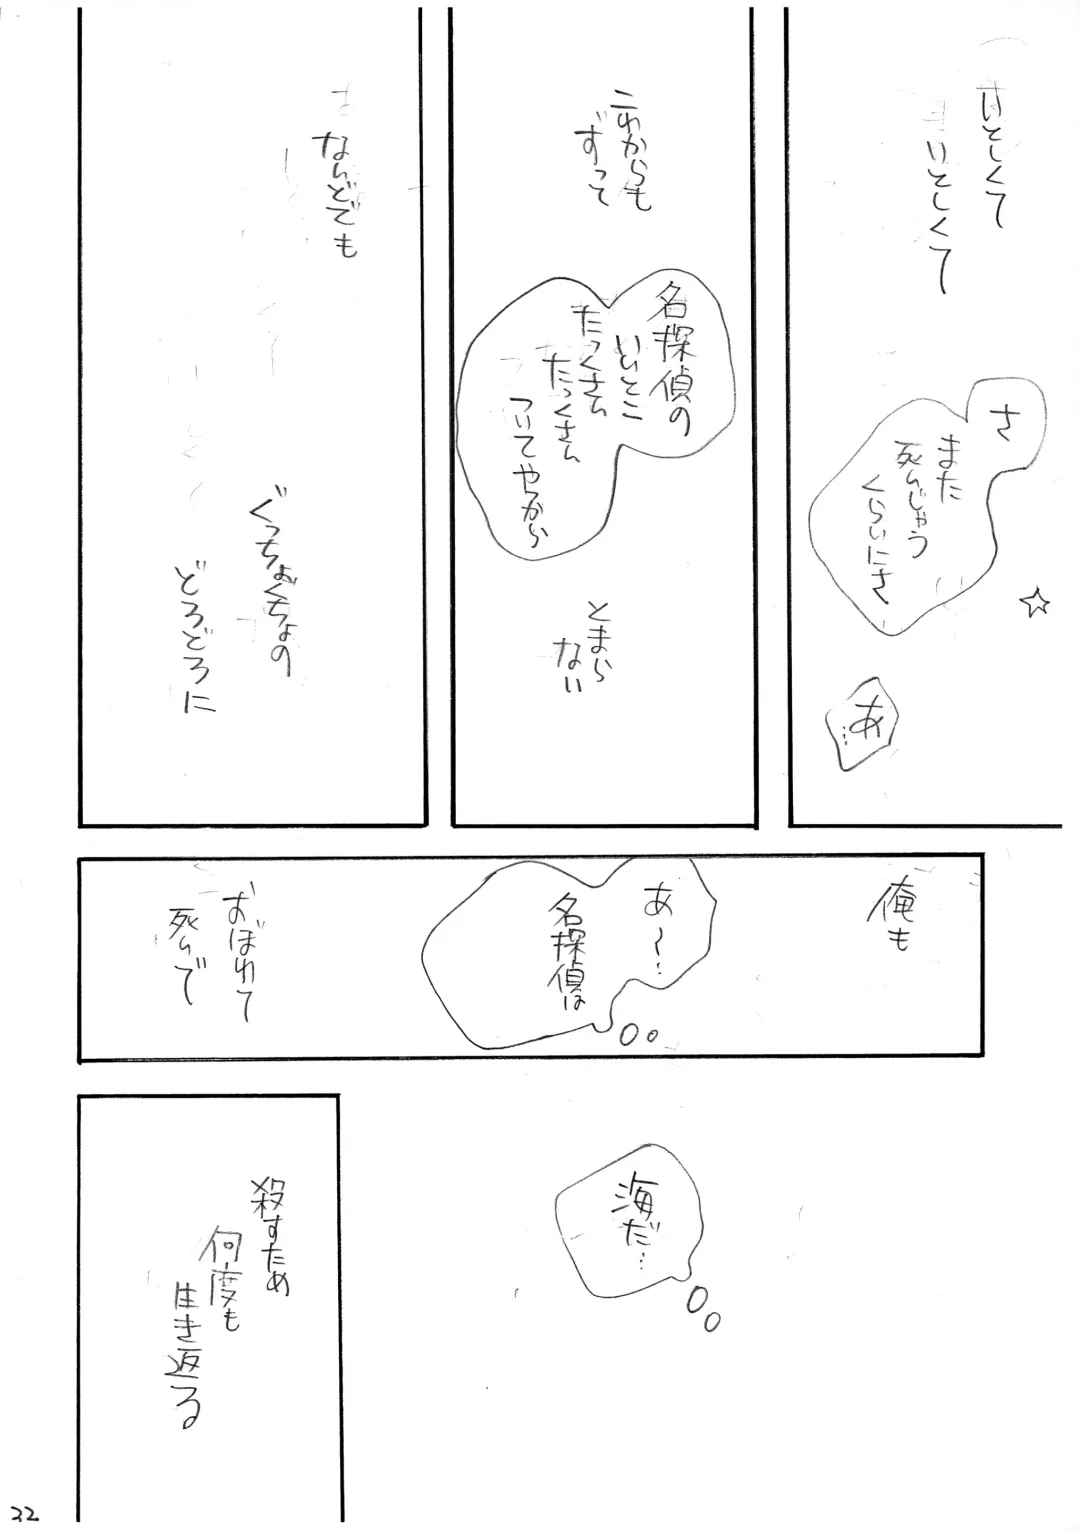 いとしくて
いとしくて
さ
また
死んじゃう
くらいにさ
☆
あ…
これからも
ずって
名探偵の
いいとこ
たっくさん
たっくさん
ついてやっから
とまら
ない
なんどでも
ぐっちょぐちょの
どろどろに
俺も
あ〜…
名探偵は
おぼれて
死んで
海だ…
殺すため
何度も
生き返る
32